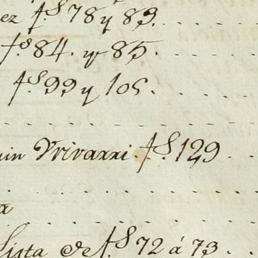 ez fs 78 y 83
fs 84. y 85.
fs 99 y 105.
uin Vrivarri fs. 129
a
Lista de fs 72 á 73.